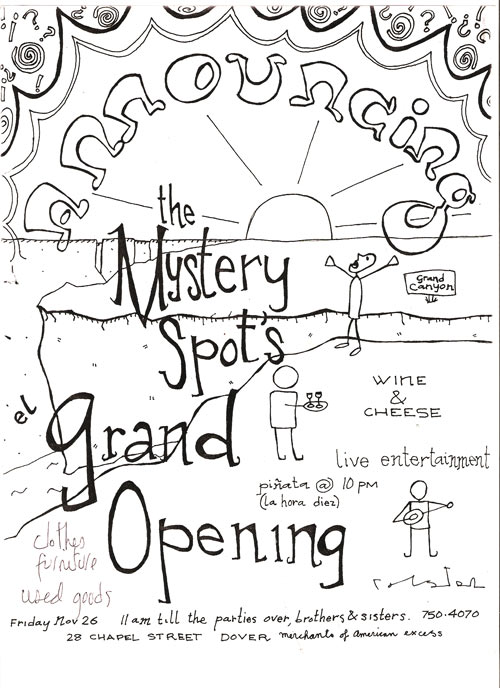 announcing
the
Mystery
Spot's
Grand
Canyon
el
grand
Opening
WINE
&
CHEESE
live entertainment
piñata @ 10 PM
(la hora diez)
clothes
furniture
used goods
Friday Nov 26 11am till the parties over, brothers & sisters. 750-4070
28 CHAPEL STREET DOVER merchants of American excess